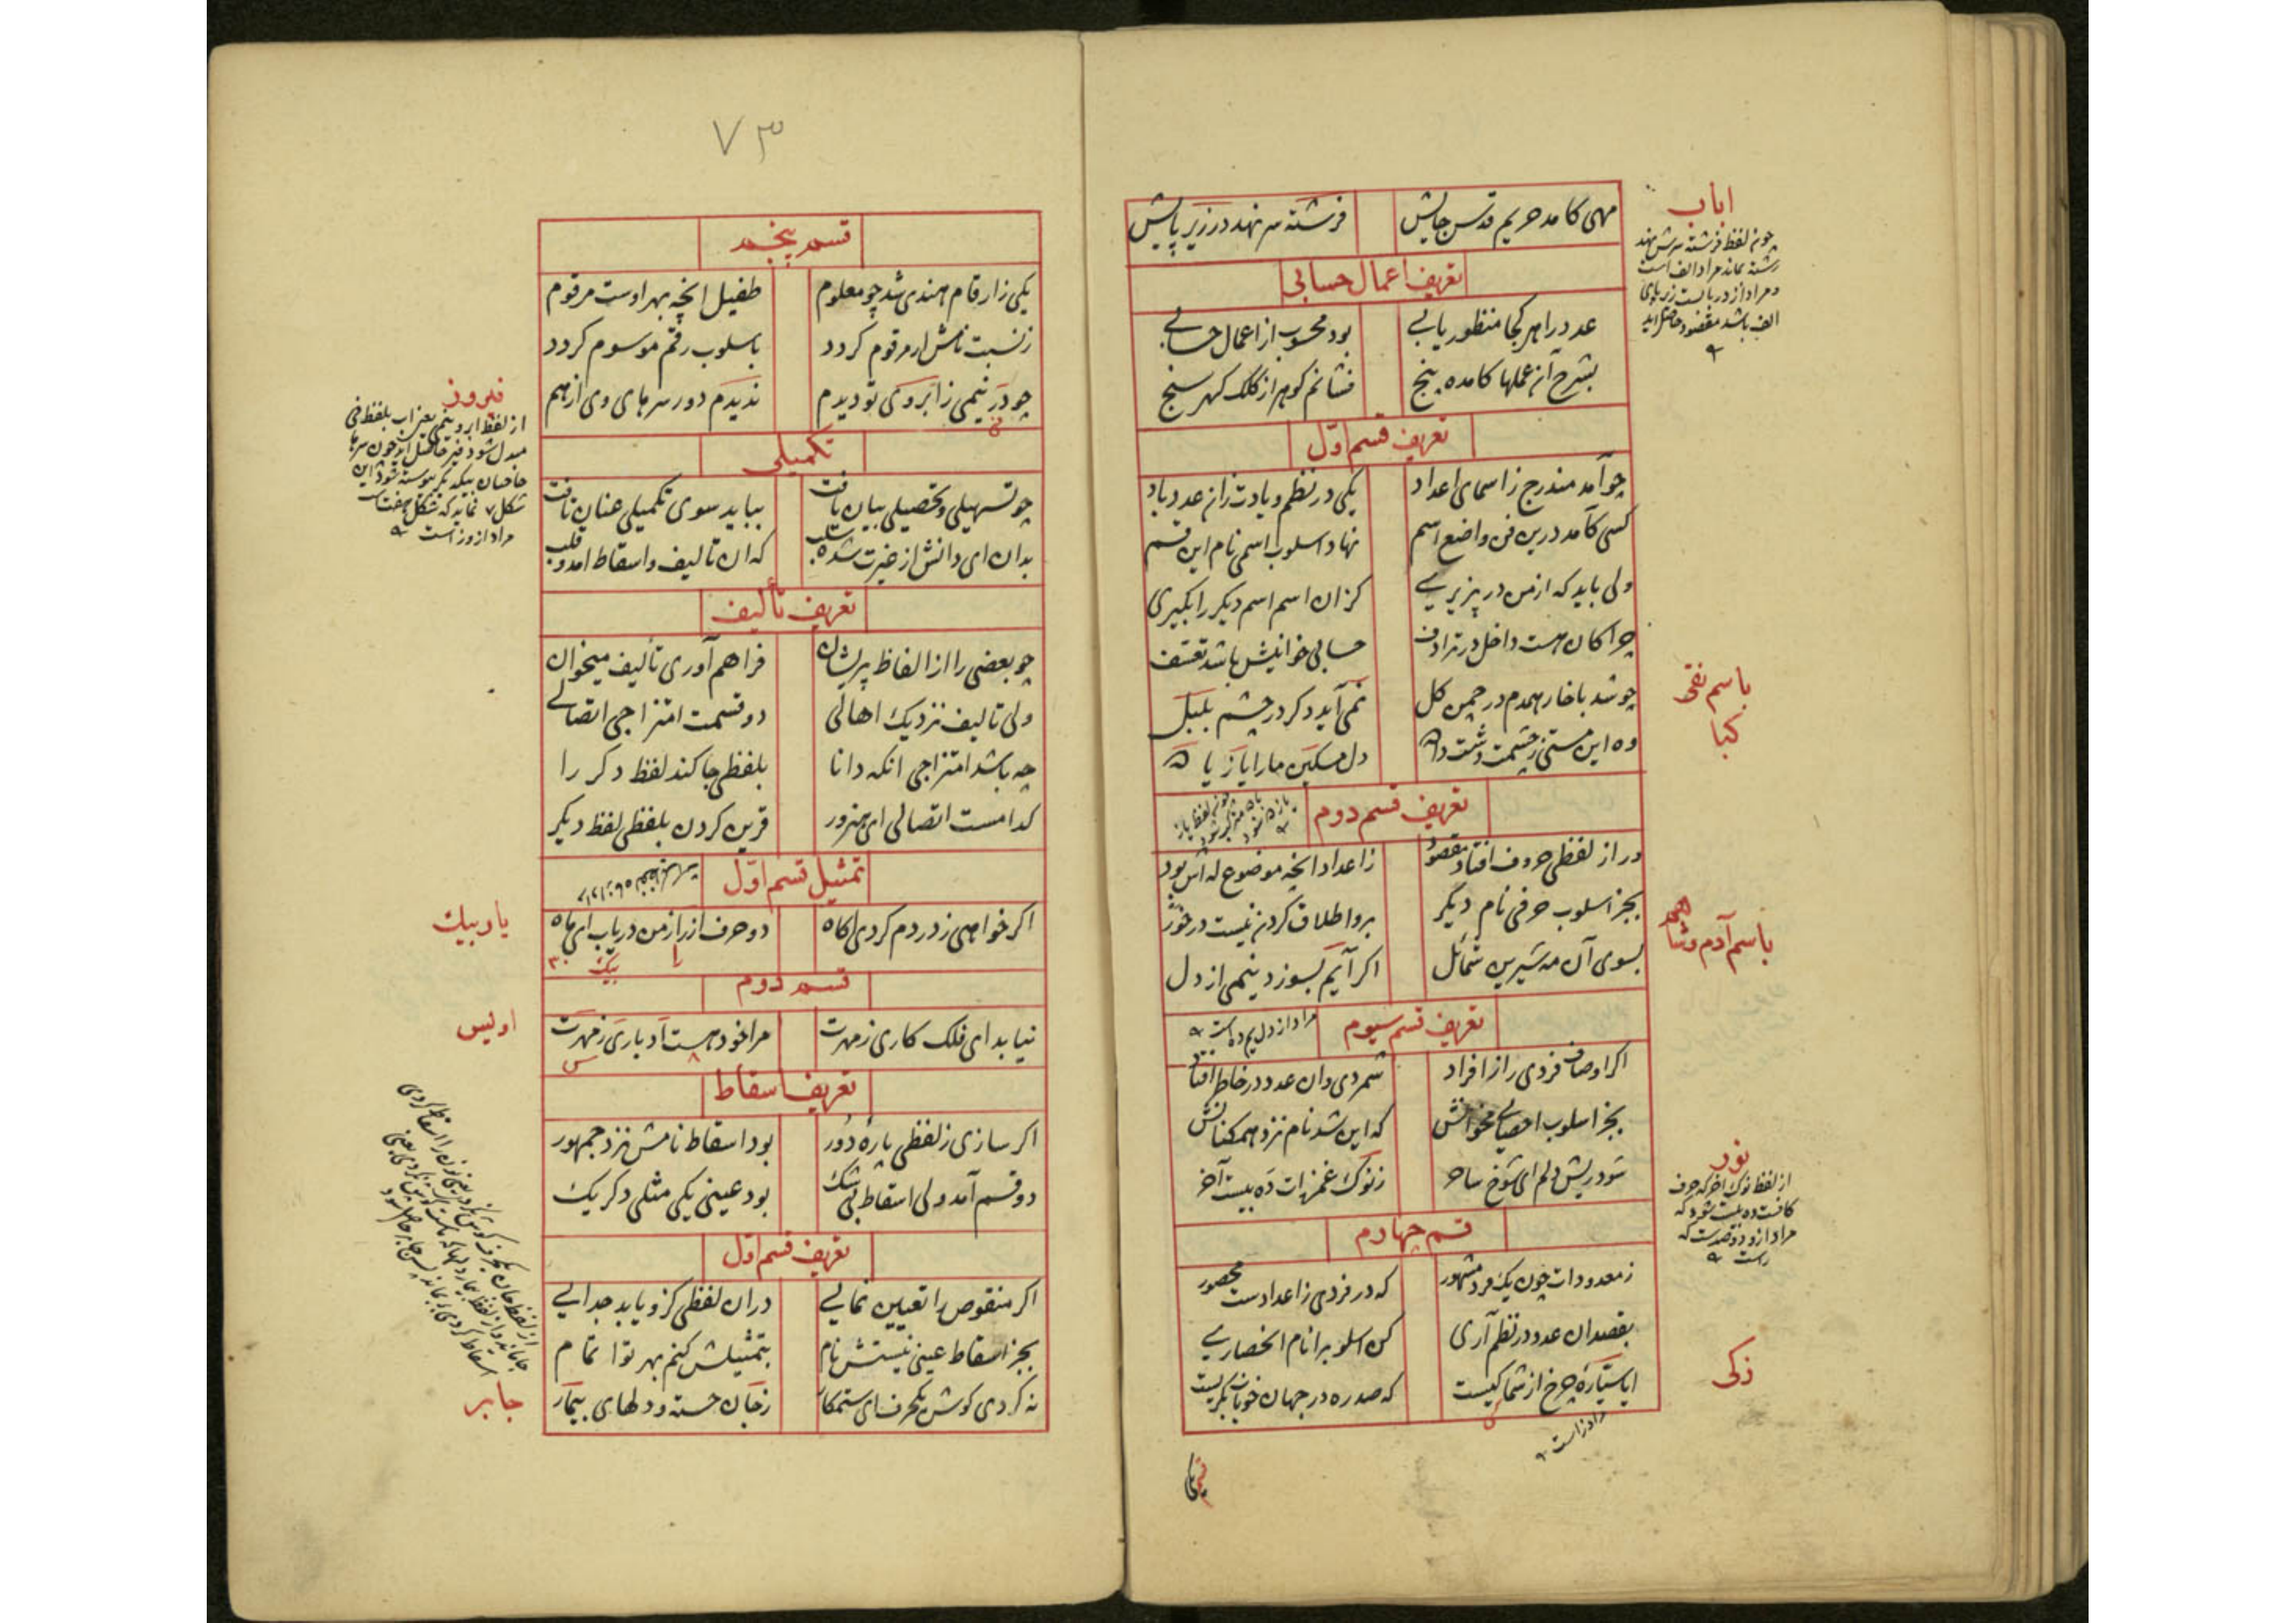 مهی کامد حریم قدس جایش فرشته سر نهد در زیر پایش
تعریف اعمال حسابی
عدد را هر کجا منظور یابی بود محسوب از اعمال حسابی
بشرح آن عملها کامده پنج فشانم کوهر از کلک کهر سنج
تعریف قسم اول
چو آمد مندرج ز اسمای اعداد یکی در نظم و یادت زان عدد باد
کسی کآمد درین فن واضع اسم نهاد اسلوب اسمی نام این قسم
ولی باید که از من در پزیری کزان اسم اسم دیکر را بکیری
چرا کان هست داخل در ترادف حسابی خوانیش باشد تعسف
چو شد با خار همدم در چمن کل نمی آید دکر در چشم بلبل
وه این مستی ز چشمت دل مسکین ما را یا ز یا
تعریف قسم دوم
چون لفظ یاز
ور از لفظی حروف افتاد مقصود ز اعداد انچه موضوع له اش بود
بجز اسلوب حرفی نام دیگر برو اطلاق کردن نیست در خور
بسوی آن مه شیرین شمائل اکر آیم بسوزد نیمی از دل
تعریف قسم سیوم
مراد از دل است
اکر اوصاف فردی را ز افراد شمردی وان عدد در خاطر افتاد
بجز اسلوب احصایی مخوانش که این شد نام نزد همکنانش
شود ریش دلم ای شوخ ساحر ز نوک غمزه ات ده بیست آخر
قسم چهارم
ز معدودات چون یک فرد مشهور که در فردی ز اعدادست محصور
بقصد ان عدد در نظم آری کن اسلوب را نام انحصاری
ایا ستاره چرخ از شما کیست که صد ره در جهان خوبان بکریست
مراد ز است
اباب
چون لفظ فرشته سرش نهد
رشته بماند مراد الف است
و مراد از در باست زیر پای
الف باشد مقصود حاصل اید
باسم نقی
کبا
باسم آدم و شاه
نور
از لفظ نوک اخر که حرف
کافست ده بیست شود که
مراد ازو دوصدست که
راست
ذکی
۷۳
قسم پنجم
یکی ز ارقام هندی شد چو معلوم طفیل انچه بهر اوست مرقوم
ز نسبت نامش ار مرقوم کردد باسلوب رقم موسوم کردد
چو در نیمی ز ابروی تو دیدم ندیدم دور سرهای وی از هم
تکمیلی
چو تسهیلی و تحصیلی بیان یافت بباید سوی تکمیلی عنان تافت
بدان ای دانش از غیرت شده سلب که ان تالیف و اسقاط امد و قلب
تعریف تألیف
چو بعضی را از الفاظ پریشان فراهم آوری تألیف میخوان
ولی تالیف نزدیک اهالی دو قسمت امتزاجی اتصالی
چه باشد امتزاجی انکه دانا بلفظی جا کند لفظ دکر را
کدامست اتصالی ای هنرور قرین کردن بلفظی لفظ دیکر
تمثیل قسم اول
اکر خواهی ز دردم کردی اکاه دو حرف از راز من دریاب ای ماه
بیک
قسم دوم
نیاید ای فلک کاری ز مهرت مرا خود هست ادباری ز مهرت
تعریف اسقاط
اکر سازی ز لفظی پاره دور بود اسقاط نامش نزد جمهور
دو قسم آمد ولی اسقاط بی شک بود عینی یکی مثلی دکر یک
تعریف قسم اول
اکر منقوص را تعیین نمایی در ان لفظی کزو یابد جدایی
بجز اسقاط عینی نیستش نام بتمثیلش کنم بهر تو اتمام
نه کردی کوش یکحرف ای ستمکار ز جان خسته و دلهای بیمار
فیروز
از لفظ ابرو نیمی یعنی اب بلفظ فی
مبدل شود فیرو حاصل اید چون سرها
حاجبان بیکدیکر پیوسته شود این
شکل ۷ نماید که شکل هفت است
مراد از وز است
یار بیک
اویس
جابر